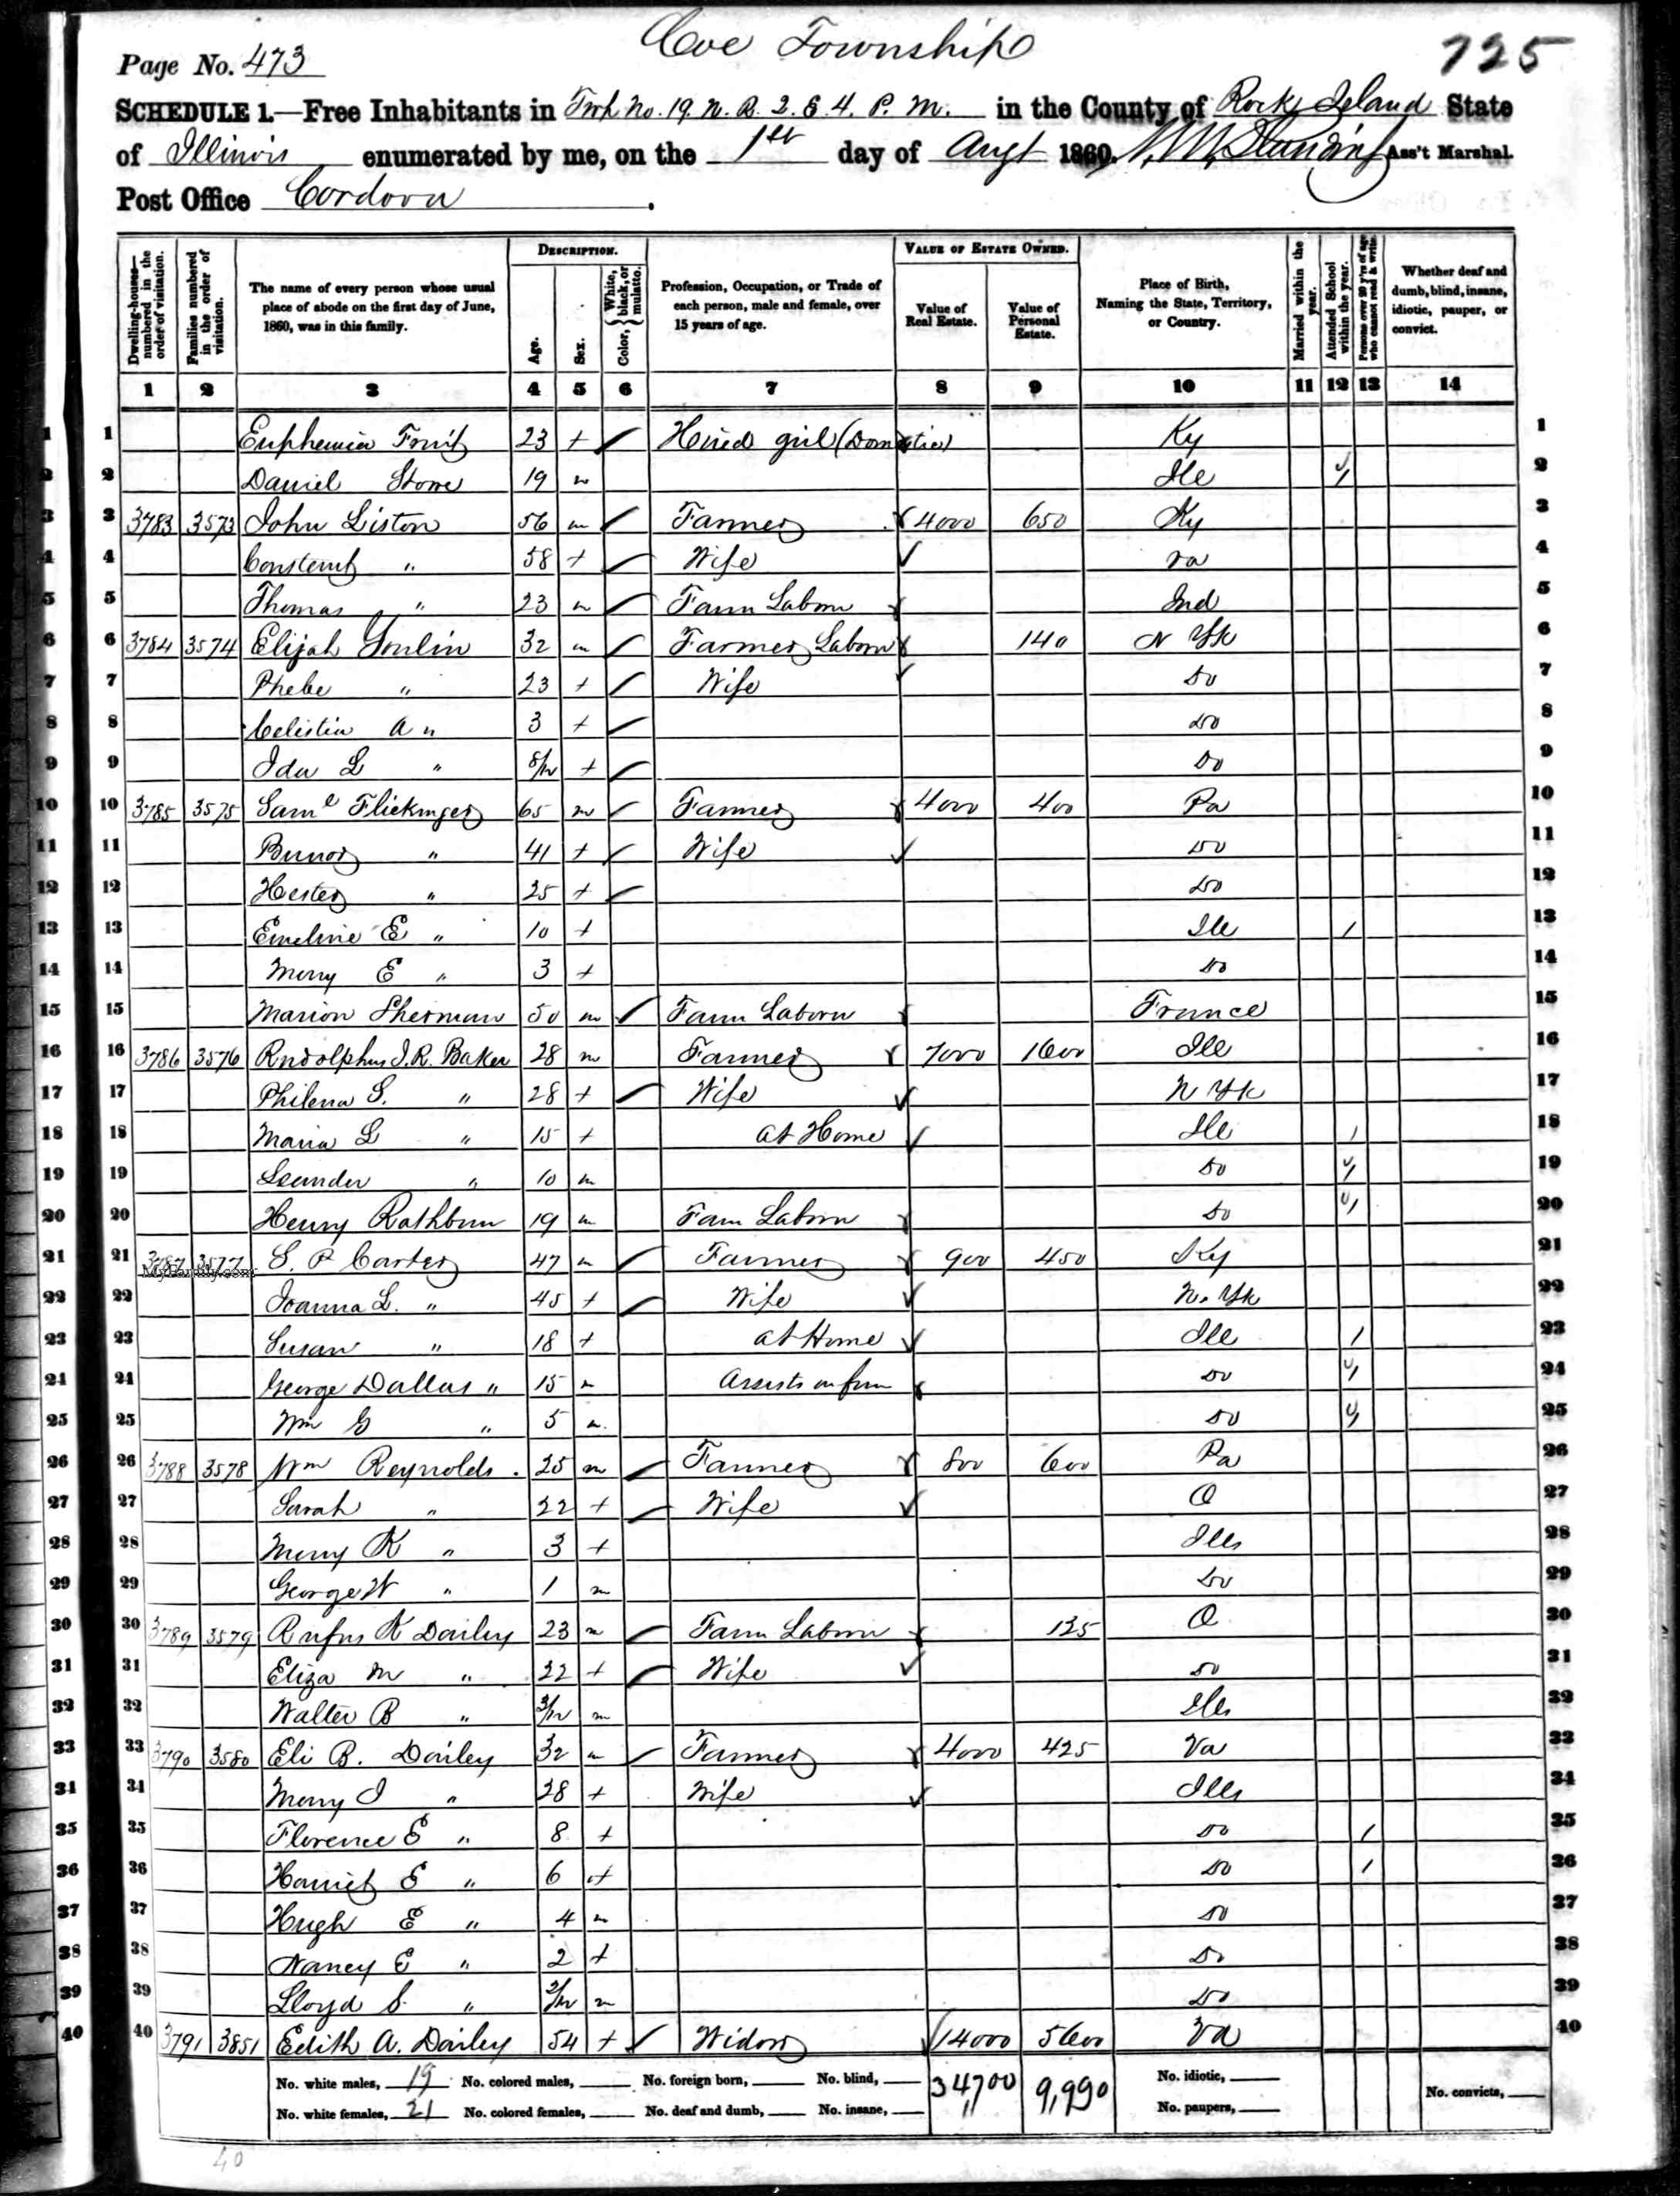 Coe Township
725
Page No. 473
SCHEDULE 1.—Free Inhabitants in Twp No. 19. N. R. 2. E 4. P. M. in the County of Rock Island State
of Illinois enumerated by me, on the 1st day of Augt 1860. Ass't Marshal.
Post Office Cordova.
Dwelling-houses—numbered in the order of visitation.
Families numbered in the order of visitation.
The name of every person whose usual place of abode on the first day of June, 1860, was in this family.
DESCRIPTION.
Age.
Sex.
Color, White, black, or mulatto.
Profession, Occupation, or Trade of each person, male and female, over 15 years of age.
VALUE OF ESTATE OWNED.
Value of Real Estate.
Value of Personal Estate.
Place of Birth, Naming the State, Territory, or Country.
Married within the year.
Attended School within the year.
Persons over 20 y'rs of age who cannot read & write.
Whether deaf and dumb, blind, insane, idiotic, pauper, or convict.
1 2 3 4 5 6 7 8 9 10 11 12 13 14
1 1 Euphemia Fruit 23 + Hired girl (Domestic) Ky 1
2 2 Daniel Stone 19 m Ill 2
3 3 3783 3573 John Liston 56 m Farmer 4000 650 Ky 3
4 4 58 + Wife Va 4
5 5 Thomas " 23 m Farm Laborer Ind 5
6 6 3784 3574 Elijah 32 m Farmer Laborer 140 N Yk 6
7 7 Phebe " 23 + Wife Do 7
8 8 Celistia A " 3 + Do 8
9 9 Ida L " 8/12 + Do 9
10 10 3785 3575 Saml Flickinger 65 m Farmer 4000 400 Pa 10
11 11 " 41 + Wife Do 11
12 12 Hester " 25 + Do 12
13 13 Emeline E " 10 + Ill 1 13
14 14 Mary E " 3 + Do 14
15 15 Marion Sherman 50 m Farm Laborer France 15
16 16 3786 3576 Rudolphus J. R. Baker 28 m Farmer 7000 1600 Ill 16
17 17 Philena S. " 28 + Wife N Yk 17
18 18 Maria L " 15 + at Home Ill 1 18
19 19 Leander " 10 m Do 19
20 20 Henry Rathbun 19 m Farm Laborer Do 20
21 21 3787 3577 S. P Carter 47 m Farmer 900 450 Ky 21
MyFamily.com
22 22 Joanna L. " 45 + Wife N. Yk 22
23 23 Susan " 18 + at Home Ill 1 23
24 24 George Dallas " 15 m Assists on farm Do 24
25 25 Wm G " 5 m Do 25
26 26 3788 3578 Wm Reynolds 25 m Farmer 800 600 Pa 26
27 27 Sarah " 22 + Wife O 27
28 28 Mary K " 3 + Ills 28
29 29 George W " 1 m Do 29
30 30 3789 3579 Rufus K Dailey 23 m Farm Laborer 135 O 30
31 31 Eliza M " 22 + Wife Do 31
32 32 Walter B " 3/12 m Ills 32
33 33 3790 3580 Eli B. Dailey 32 m Farmer 4000 425 Va 33
34 34 Mary J " 28 + Wife Ills 34
35 35 Florence E " 8 + Do 1 35
36 36 Harriet E " 6 + Do 1 36
37 37 Hugh E " 4 m Do 37
38 38 Nancy E " 2 + Do 38
39 39 Lloyd S. " m Do 39
40 40 3791 3851 Edith A. Dailey 54 + Widow 14000 5600 Va 40
No. white males, 19 No. colored males, No. foreign born, No. blind, 34,700 9,990 No. idiotic, No. convicts,
No. white females, 21 No. colored females, No. deaf and dumb, No. insane, No. paupers,
40